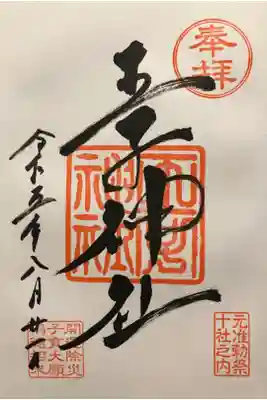 奉拝
王子神社
王子神社
元准勅祭
十社之内
令和五年八月廿一日
開運除災
子育大願